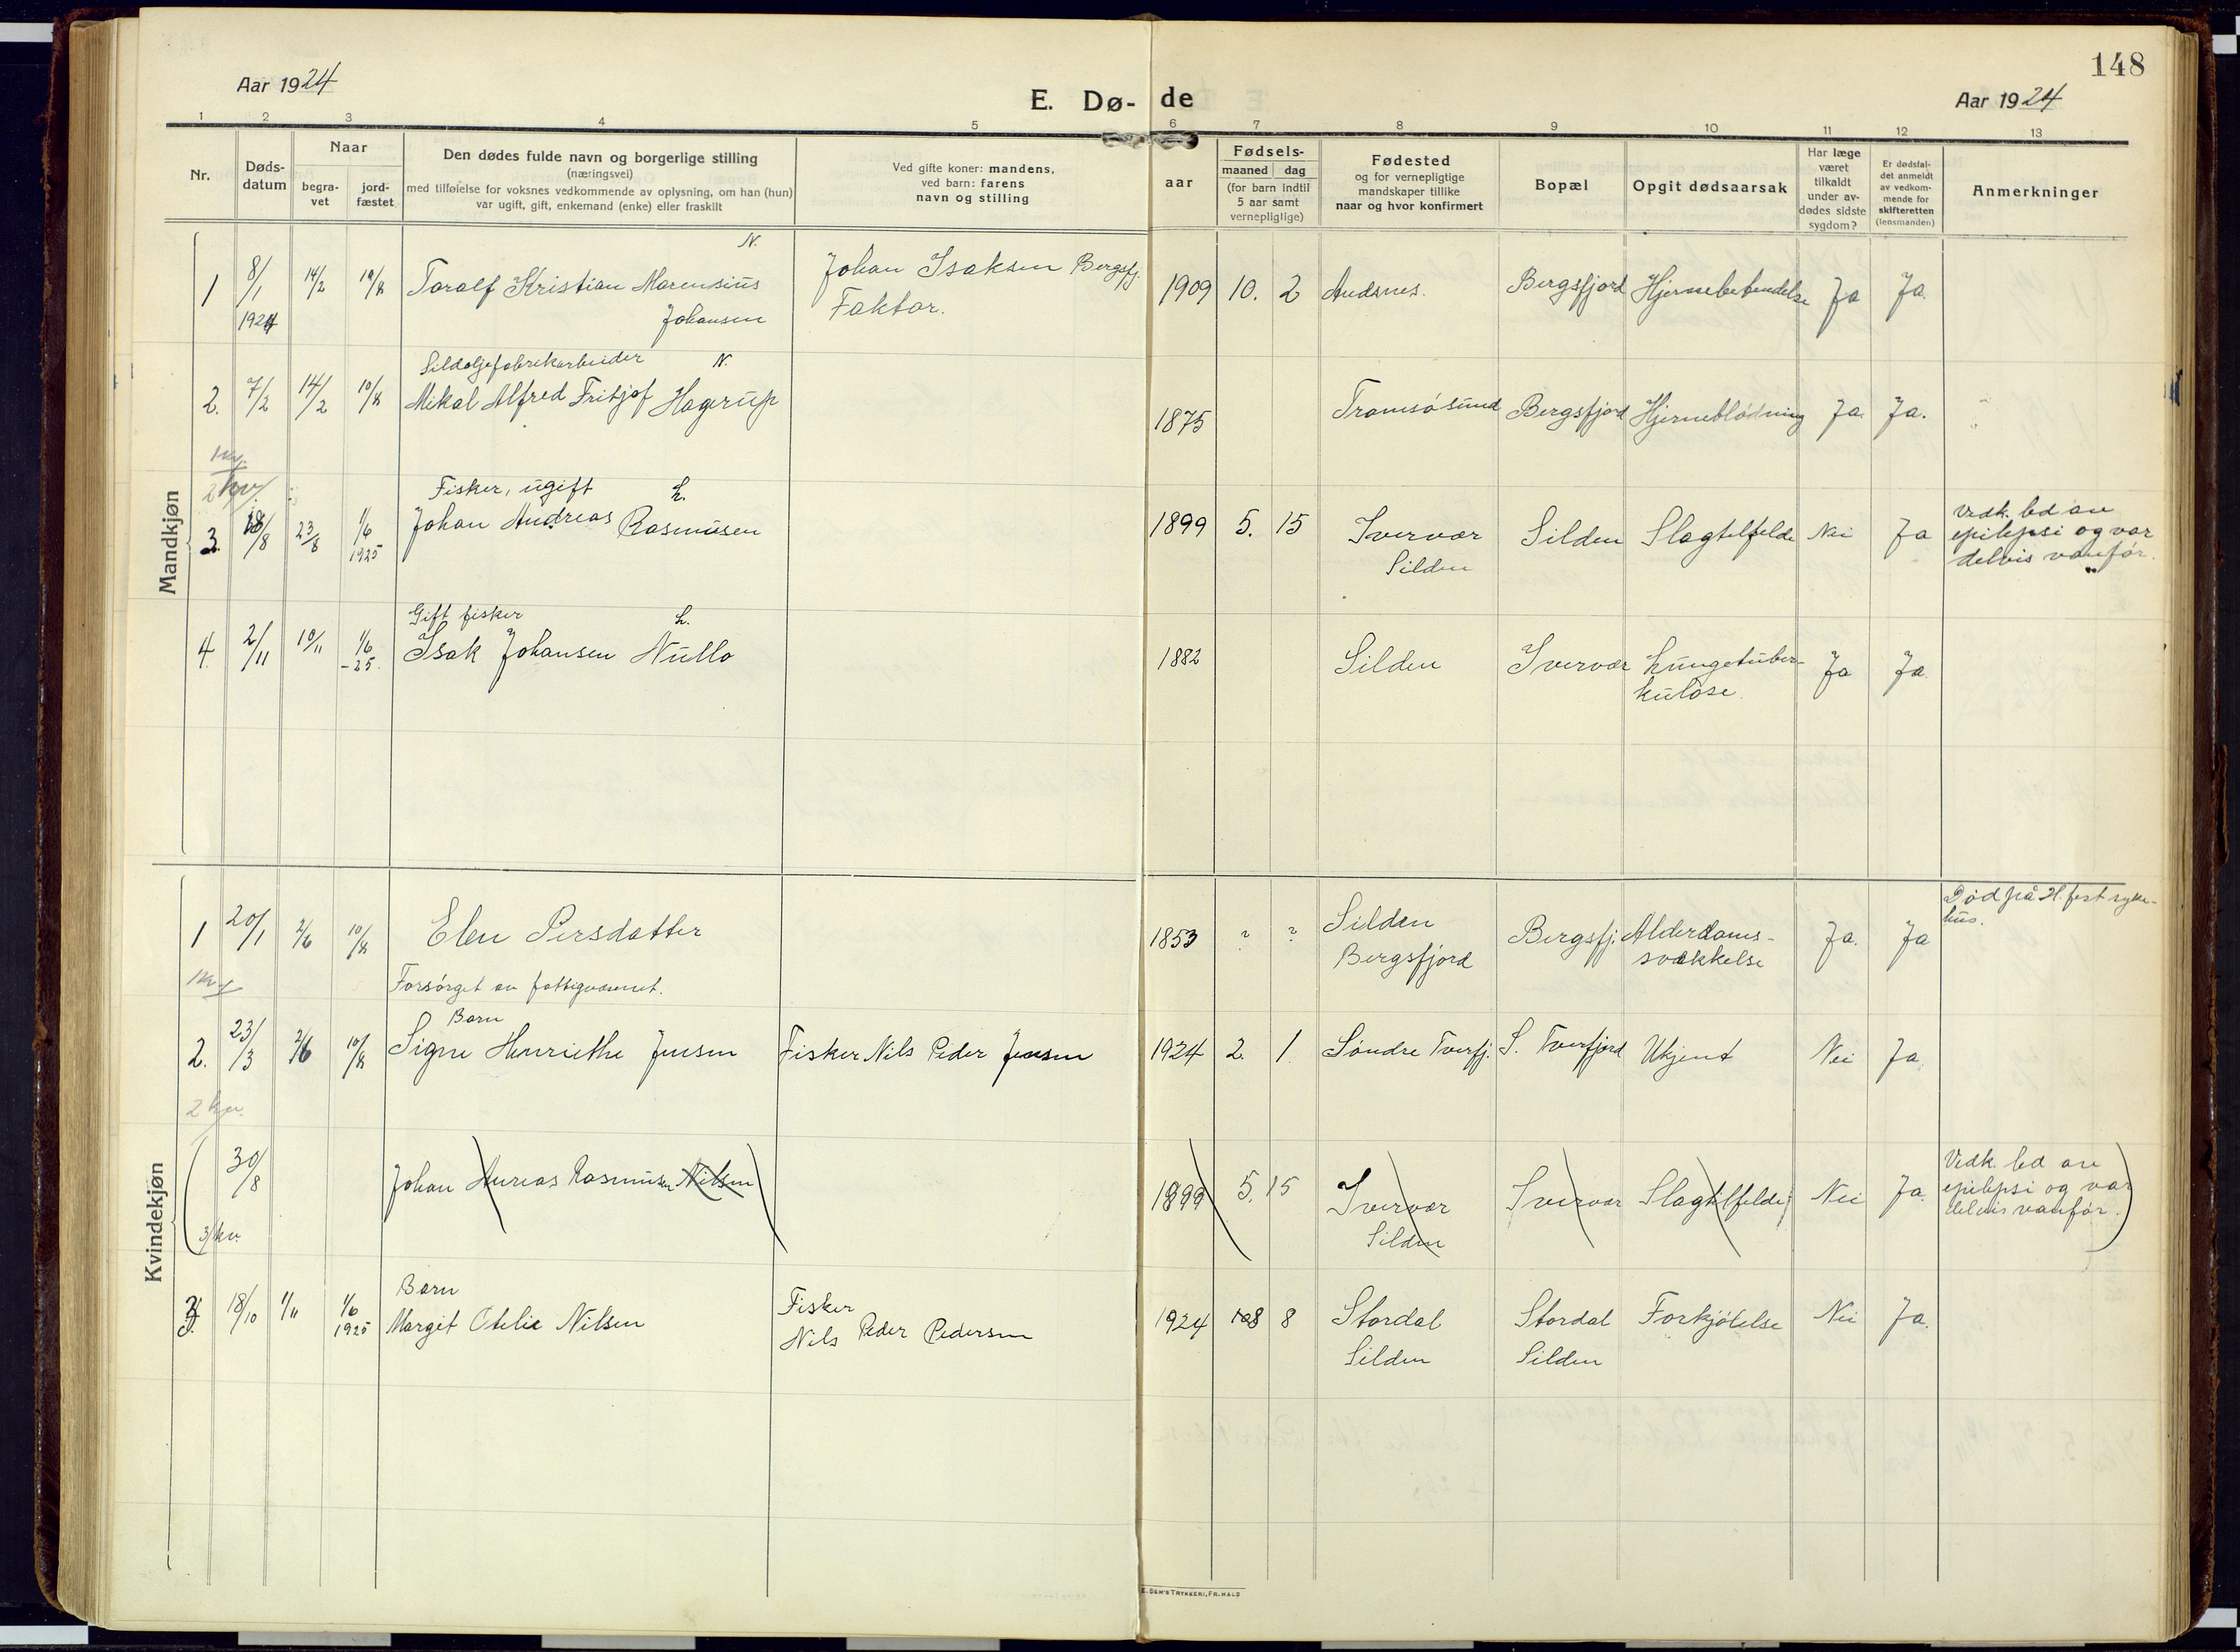 148
Aar 1924
E. Dø- de
Aar 1924
1 2 3 4 5 6 7 8 9 10 11 12 13
Nr.
Døds-
datum
Naar
begra-
vet
jord-
fæstet
Den dødes fulde navn og borgerlige stilling
(næringsvei)
med tilføielse for voksnes vedkommende av oplysning, om han (hun)
var ugift, gift, enkemand (enke) eller fraskilt
Ved gifte koner: mandens,
ved barn: farens
navn og stilling
aar
Fødsels-
maaned dag
(for barn indtil
5 aar samt
vernepligtige)
Fødested
og for vernepligtige
mandskaper tillike
naar og hvor konfirmert
Bopæl
Opgit dødsaarsak
Har læge
været
tilkaldt
under av-
dødes sidste
sygdom?
Er dødsfal-
det anmeldt
av vedkom-
mende for
skifteretten
(lensmanden)
Anmerkninger
Mandkjøn
N.
1 8/1 14/2 10/8 Toralf Kristian Marensius Johan Isaksen Bergsfj. 1909 10. 2 Andsnes. Bergsfjord Hjernebetendelse Ja Ja.
1924 Johansen Faktor.
Sildoljefabrikarbeider N.
2. 7/2 14/2 10/8 Mikal Alfred Fritjof Hagerup 1875 Tromsøsund Bergsfjord Hjerneblødning Ja. Ja.
1 kv.
2 kv.
Fisker, ugift L.
3. 18/8 23/8 1/6 1925 Johan Andreas Rasmusen 1899 5. 15 Ivervær Silden Slagtilfelde Nei Ja Vedk. led av
Silden epilepsi og var
delvis vanfør.
Gift fisker L.
4. 2/11 10/11 1/6 -25. Isak Johansen Nullo 1882 Silden Ivervær Lungetuber- Ja Ja
kulose.
Kvindekjøn
1 20/1 2/6 10/8 Elen Persdatter 1853 ? ? Silden Bergsfj. Alderdoms- Ja. Ja Død på H.fest syke-
Bergsfjord svækkelse hus.
1 kv.
Forsørget av fattigvæsenet.
Barn
2. 23/3 2/6 10/8 Signe Henriethe Jensen Fisker Nils Peder Jensen 1924 2. 1 Søndre Tverfj. S. Tverfjord Ukjent Nei Ja.
2 kv.
30/8 Johan Anreas Rasmusen Nilsen 1899 5. 15 Ivervær Ivervær Slagtilfelde Nei Ja. Vedk. led av
Silden epilepsi og var
delvis vanfør.
3 kv.
Barn
3. 18/10 1/11 1/6 1925 Margit Otelie Nilsen Fisker 1924 8 8 Stordal Stordal Forkjølelse Nei Ja.
Nils Peder Pedersen Silden Silden
E. SEM'S TRYKKERI, FR.HALD